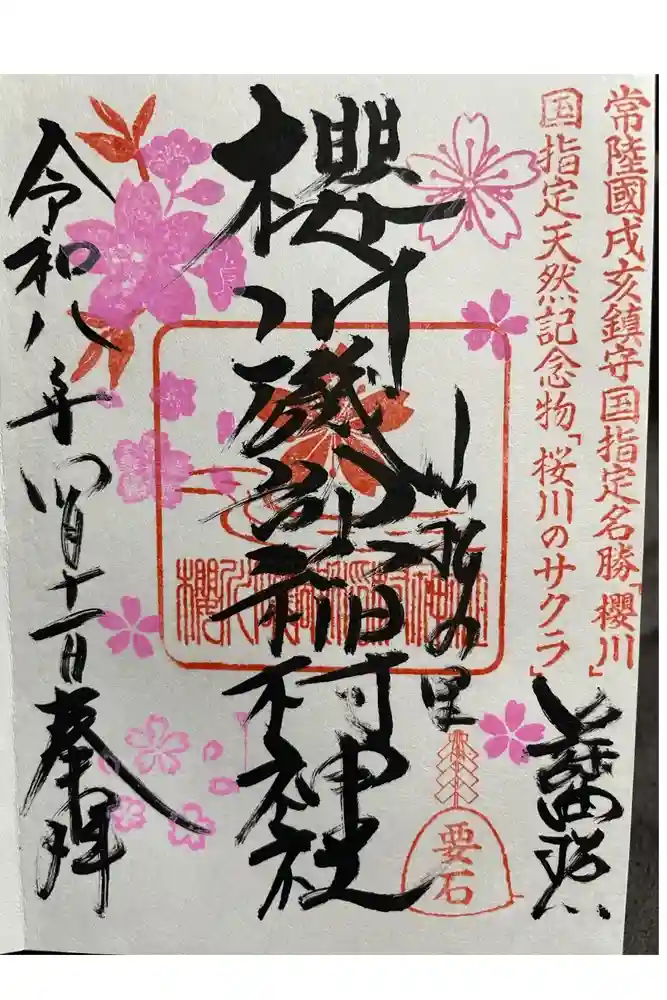 常陸國戌亥鎮守国指定名勝「櫻川」
国指定天然記念物「桜川のサクラ」
山桜の里
要石
櫻川磯部稲村神社
櫻川磯部稲村神社
令和八年四月十一日奉拝